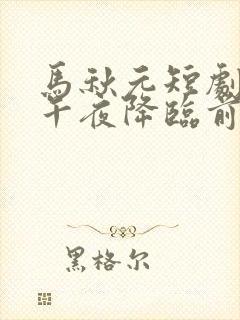 馬秋元短劇
午夜降臨前
黑格尔